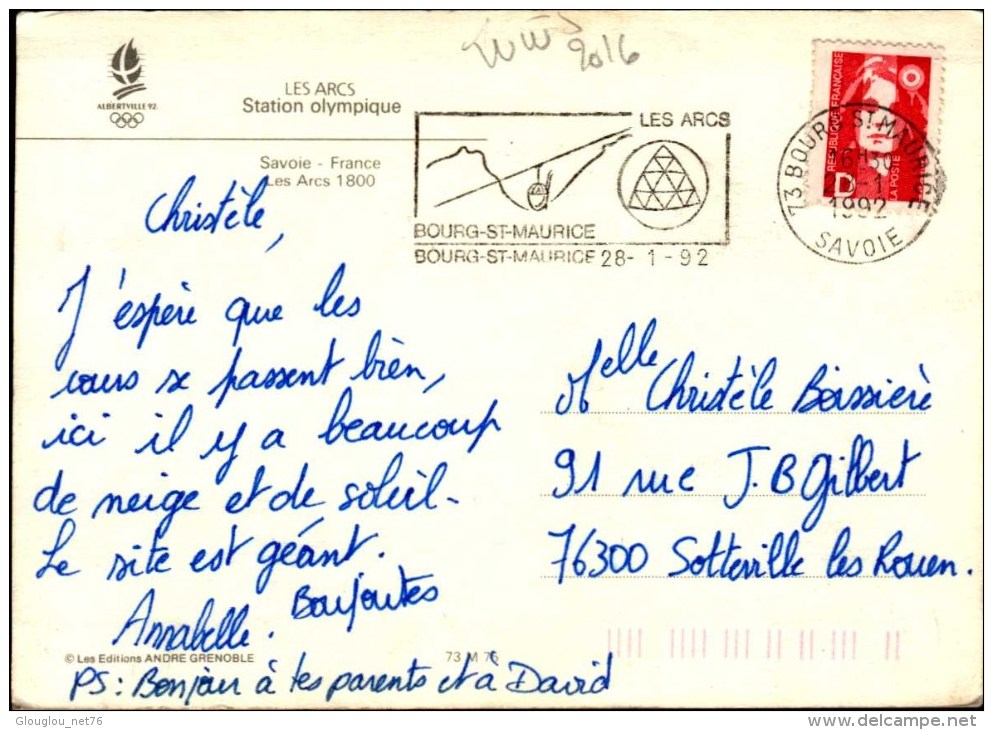 2016
ALBERTVILLE 92
LES ARCS
Station olympique
Savoie - France
Les Arcs 1800
LES ARCS
BOURG-ST-MAURICE
BOURG-ST-MAURICE 28-1-92
RÉPUBLIQUE FRANÇAISE
LA POSTE
D
73 BOURG ST MAURICE
16H30
1992
SAVOIE
Christèle,
J'espère que les
cours se passent bien,
ici il y a beaucoup
de neige et de soleil-
Le site est géant.
Boujoutes
Annabelle.
PS: Bonjour à tes parents et à David
Melle Christèle Boissière
91 rue J.B Gilbert
76300 Sotteville les Rouen.
© Les Editions ANDRE GRENOBLE
73 M 76
Glouglou_net76
delcampe.net